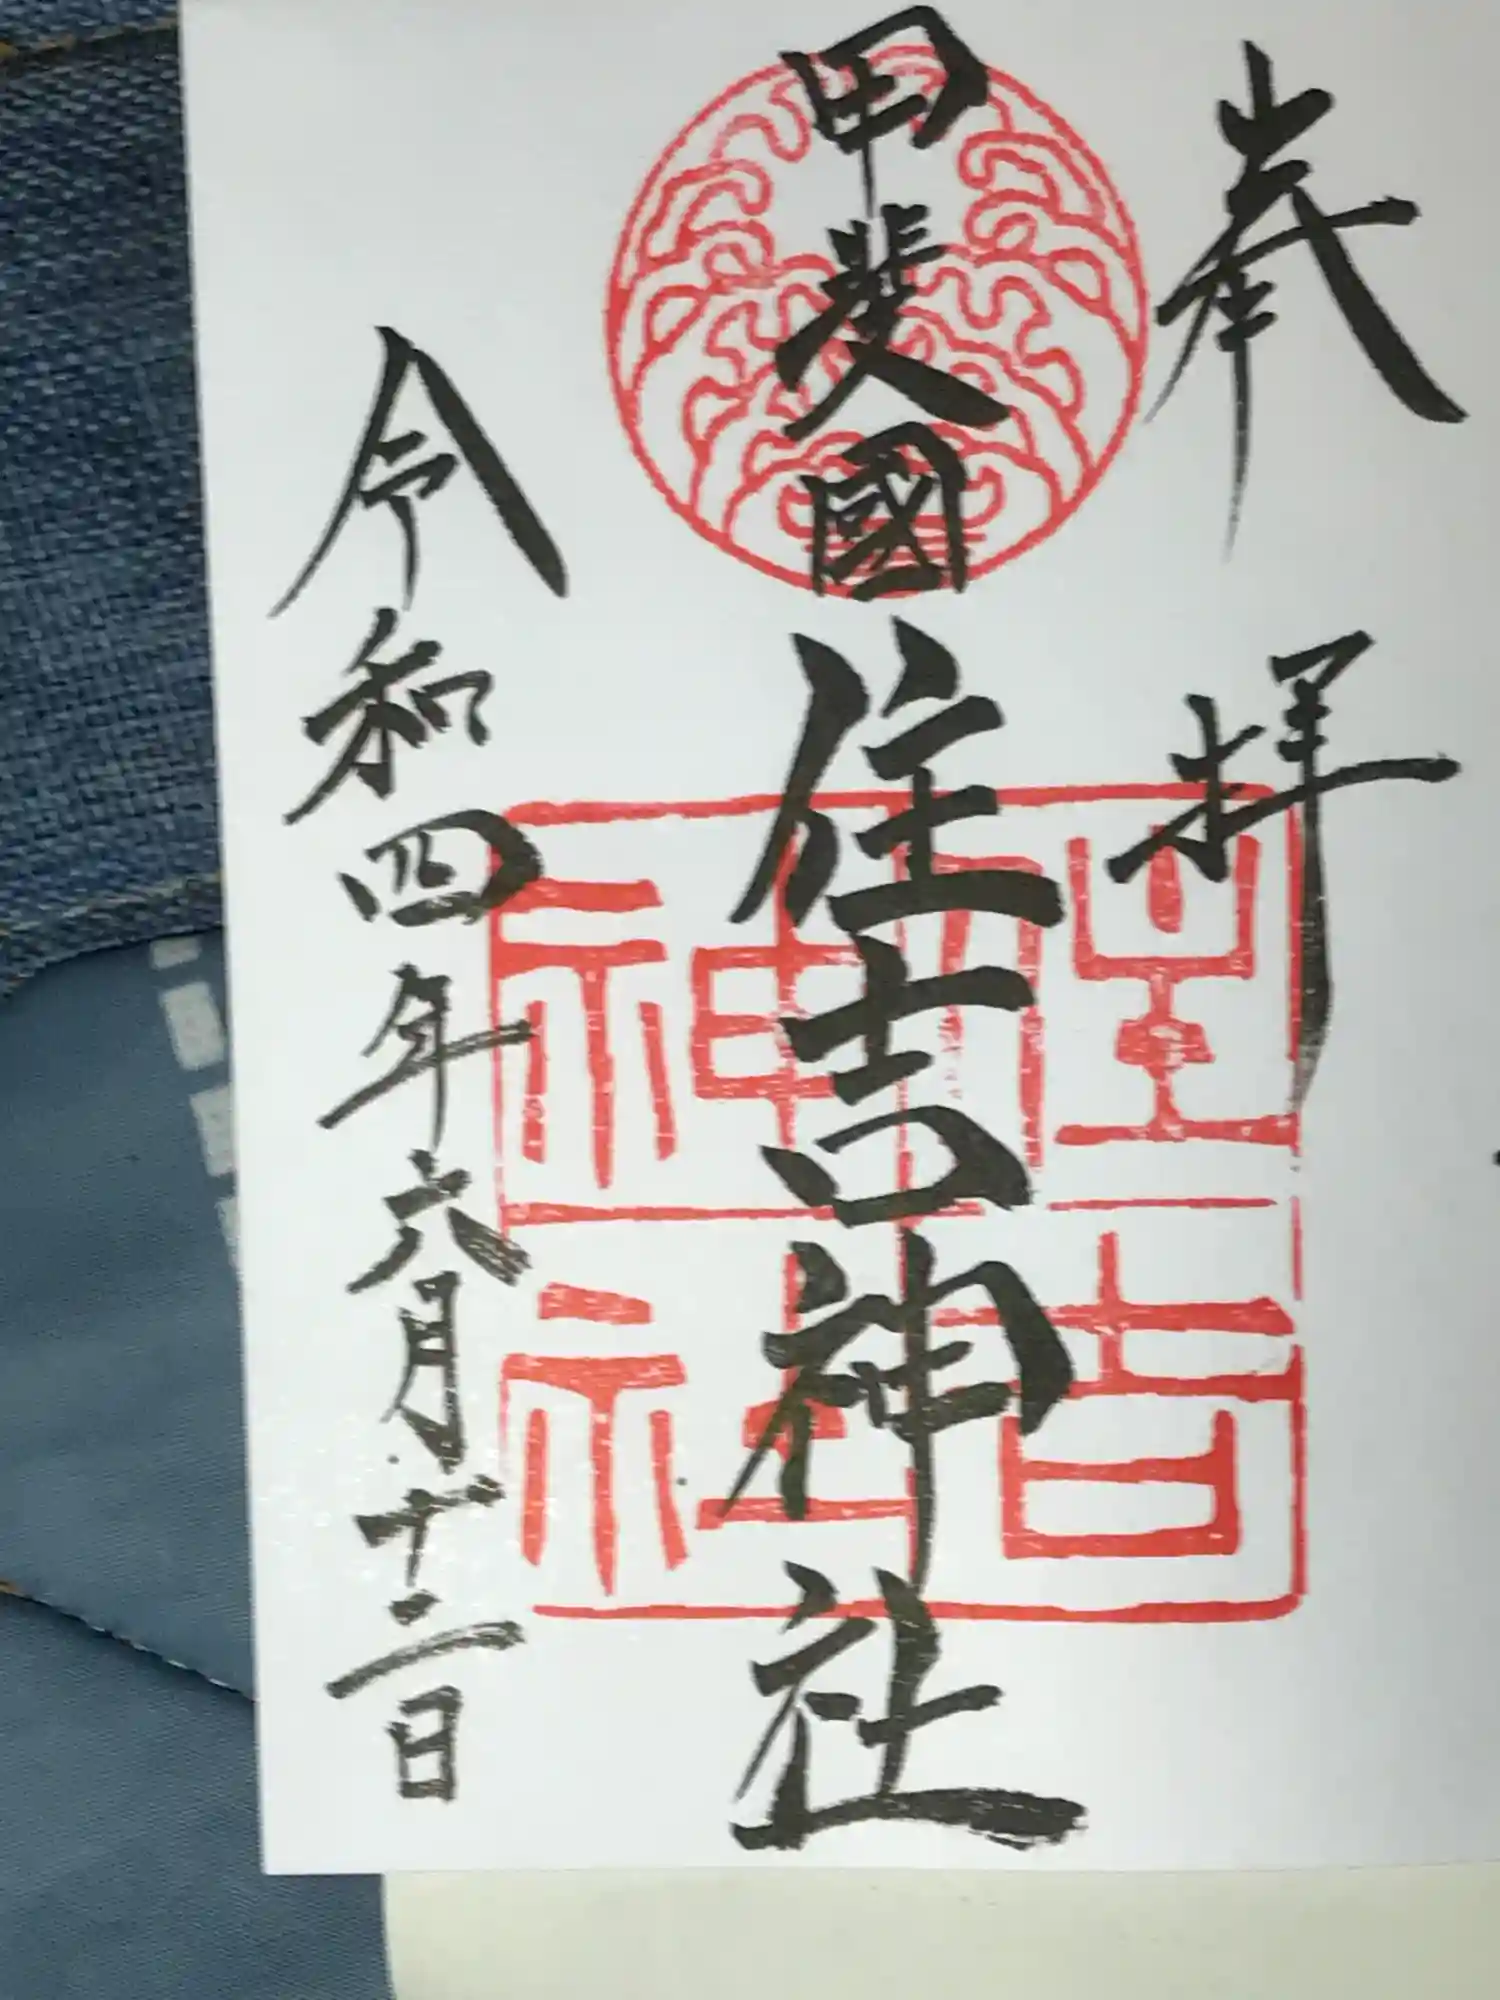 奉拝
甲斐國
住吉神社
令和四年六月十二日
住吉
神社